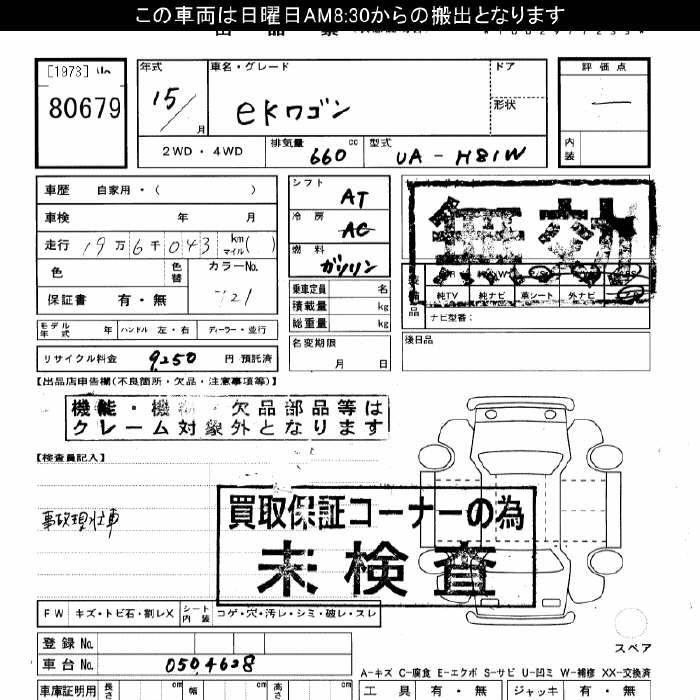 この車両は日曜日AM8:30からの搬出となります
[1973] 山
80679
年式 車名・グレード ドア 評価点
15/ 月 eKワゴン 形状 —
2WD・4WD 排気量 660 cc 型式 UA-H81W 内装
車歴 自家用・( )
車検 年 月
走行 19万6千043 km マイル( )
色 色替 カラーNo.
保証書 有・無
シフト AT
冷房 AC
燃料 ガソリン
乗車定員 名
積載量 kg
総重量 kg
名変期限 月 日
純TV 純ナビ 革シート 外ナビ
ナビ型番:
後日品
モデル年式 年 ハンドル 左・右 ディーラー・並行
リサイクル料金 9,250 円 預託済
【出品店申告欄(不良箇所・欠品・注意事項等)】
機能・機 ・欠品部品等は
クレーム対象外となります
【検査員記入】
事故現状車
買取保証コーナーの為
未検査
FW キズ・トビ石・割レX シート内装 コゲ・穴・汚レ・シミ・破レ・スレ
登録 No.
車台 No. 0504628
スペア
A-キズ C-腐食 E-エクボ S-サビ U-凹ミ W-補修 XX-交換済
車庫証明用 長さ cm 幅 cm 高さ cm 工具 有・無 ジャッキ 有・無